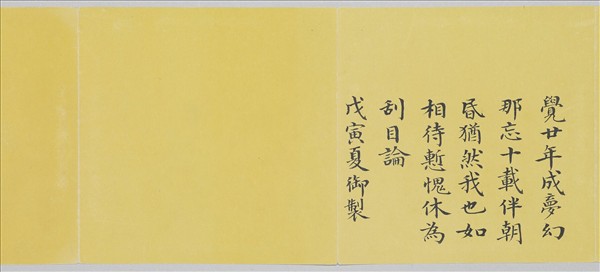 覺廿年成夢幻
那忘十載伴朝
昏猶然我也如
相待慙愧休為
刮目論
戊寅夏御製